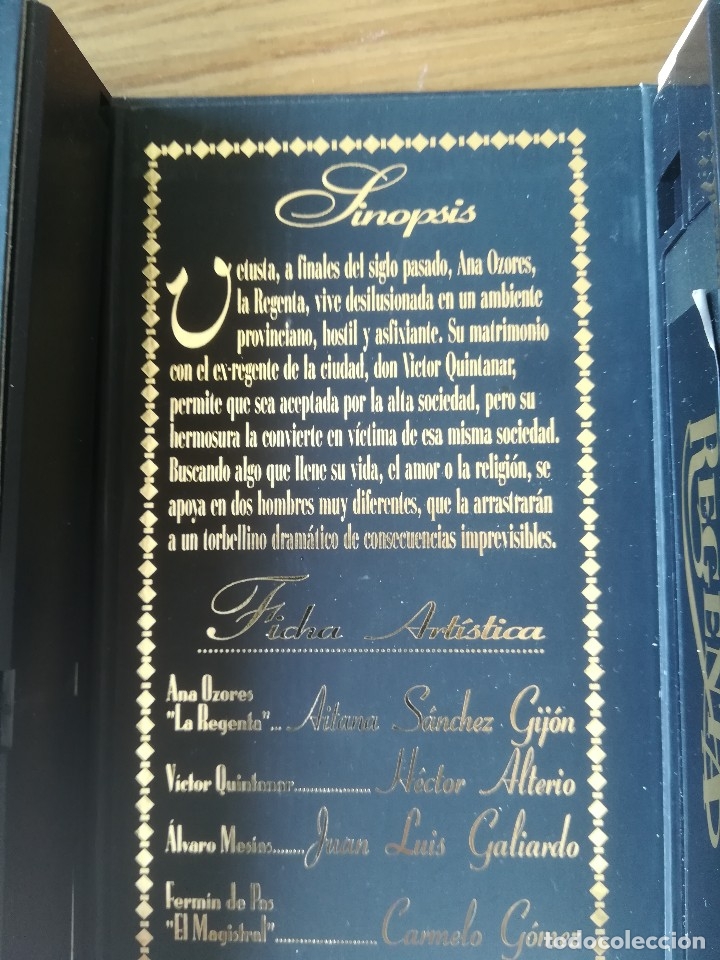 Sinopsis
Vetusta, a finales del siglo pasado, Ana Ozores,
la Regenta, vive desilusionada en un ambiente
provinciano, hostil y asfixiante. Su matrimonio
con el ex-regente de la ciudad, don Victor Quintanar,
permite que sea aceptada por la alta sociedad, pero su
hermosura la convierte en víctima de esa misma sociedad.
Buscando algo que llene su vida, el amor o la religión, se
apoya en dos hombres muy diferentes, que la arrastrarán
a un torbellino dramático de consecuencias imprevisibles.
Ficha Artística
Ana Ozores
"La Regenta"... Aitana Sánchez Gijón
Víctor Quintanar.................. Héctor Alterio
Álvaro Mesías....... Juan Luis Galiardo
Fermín de Pas
"El Magistral"................ Carmelo Gómez
REGENTA
todocolección